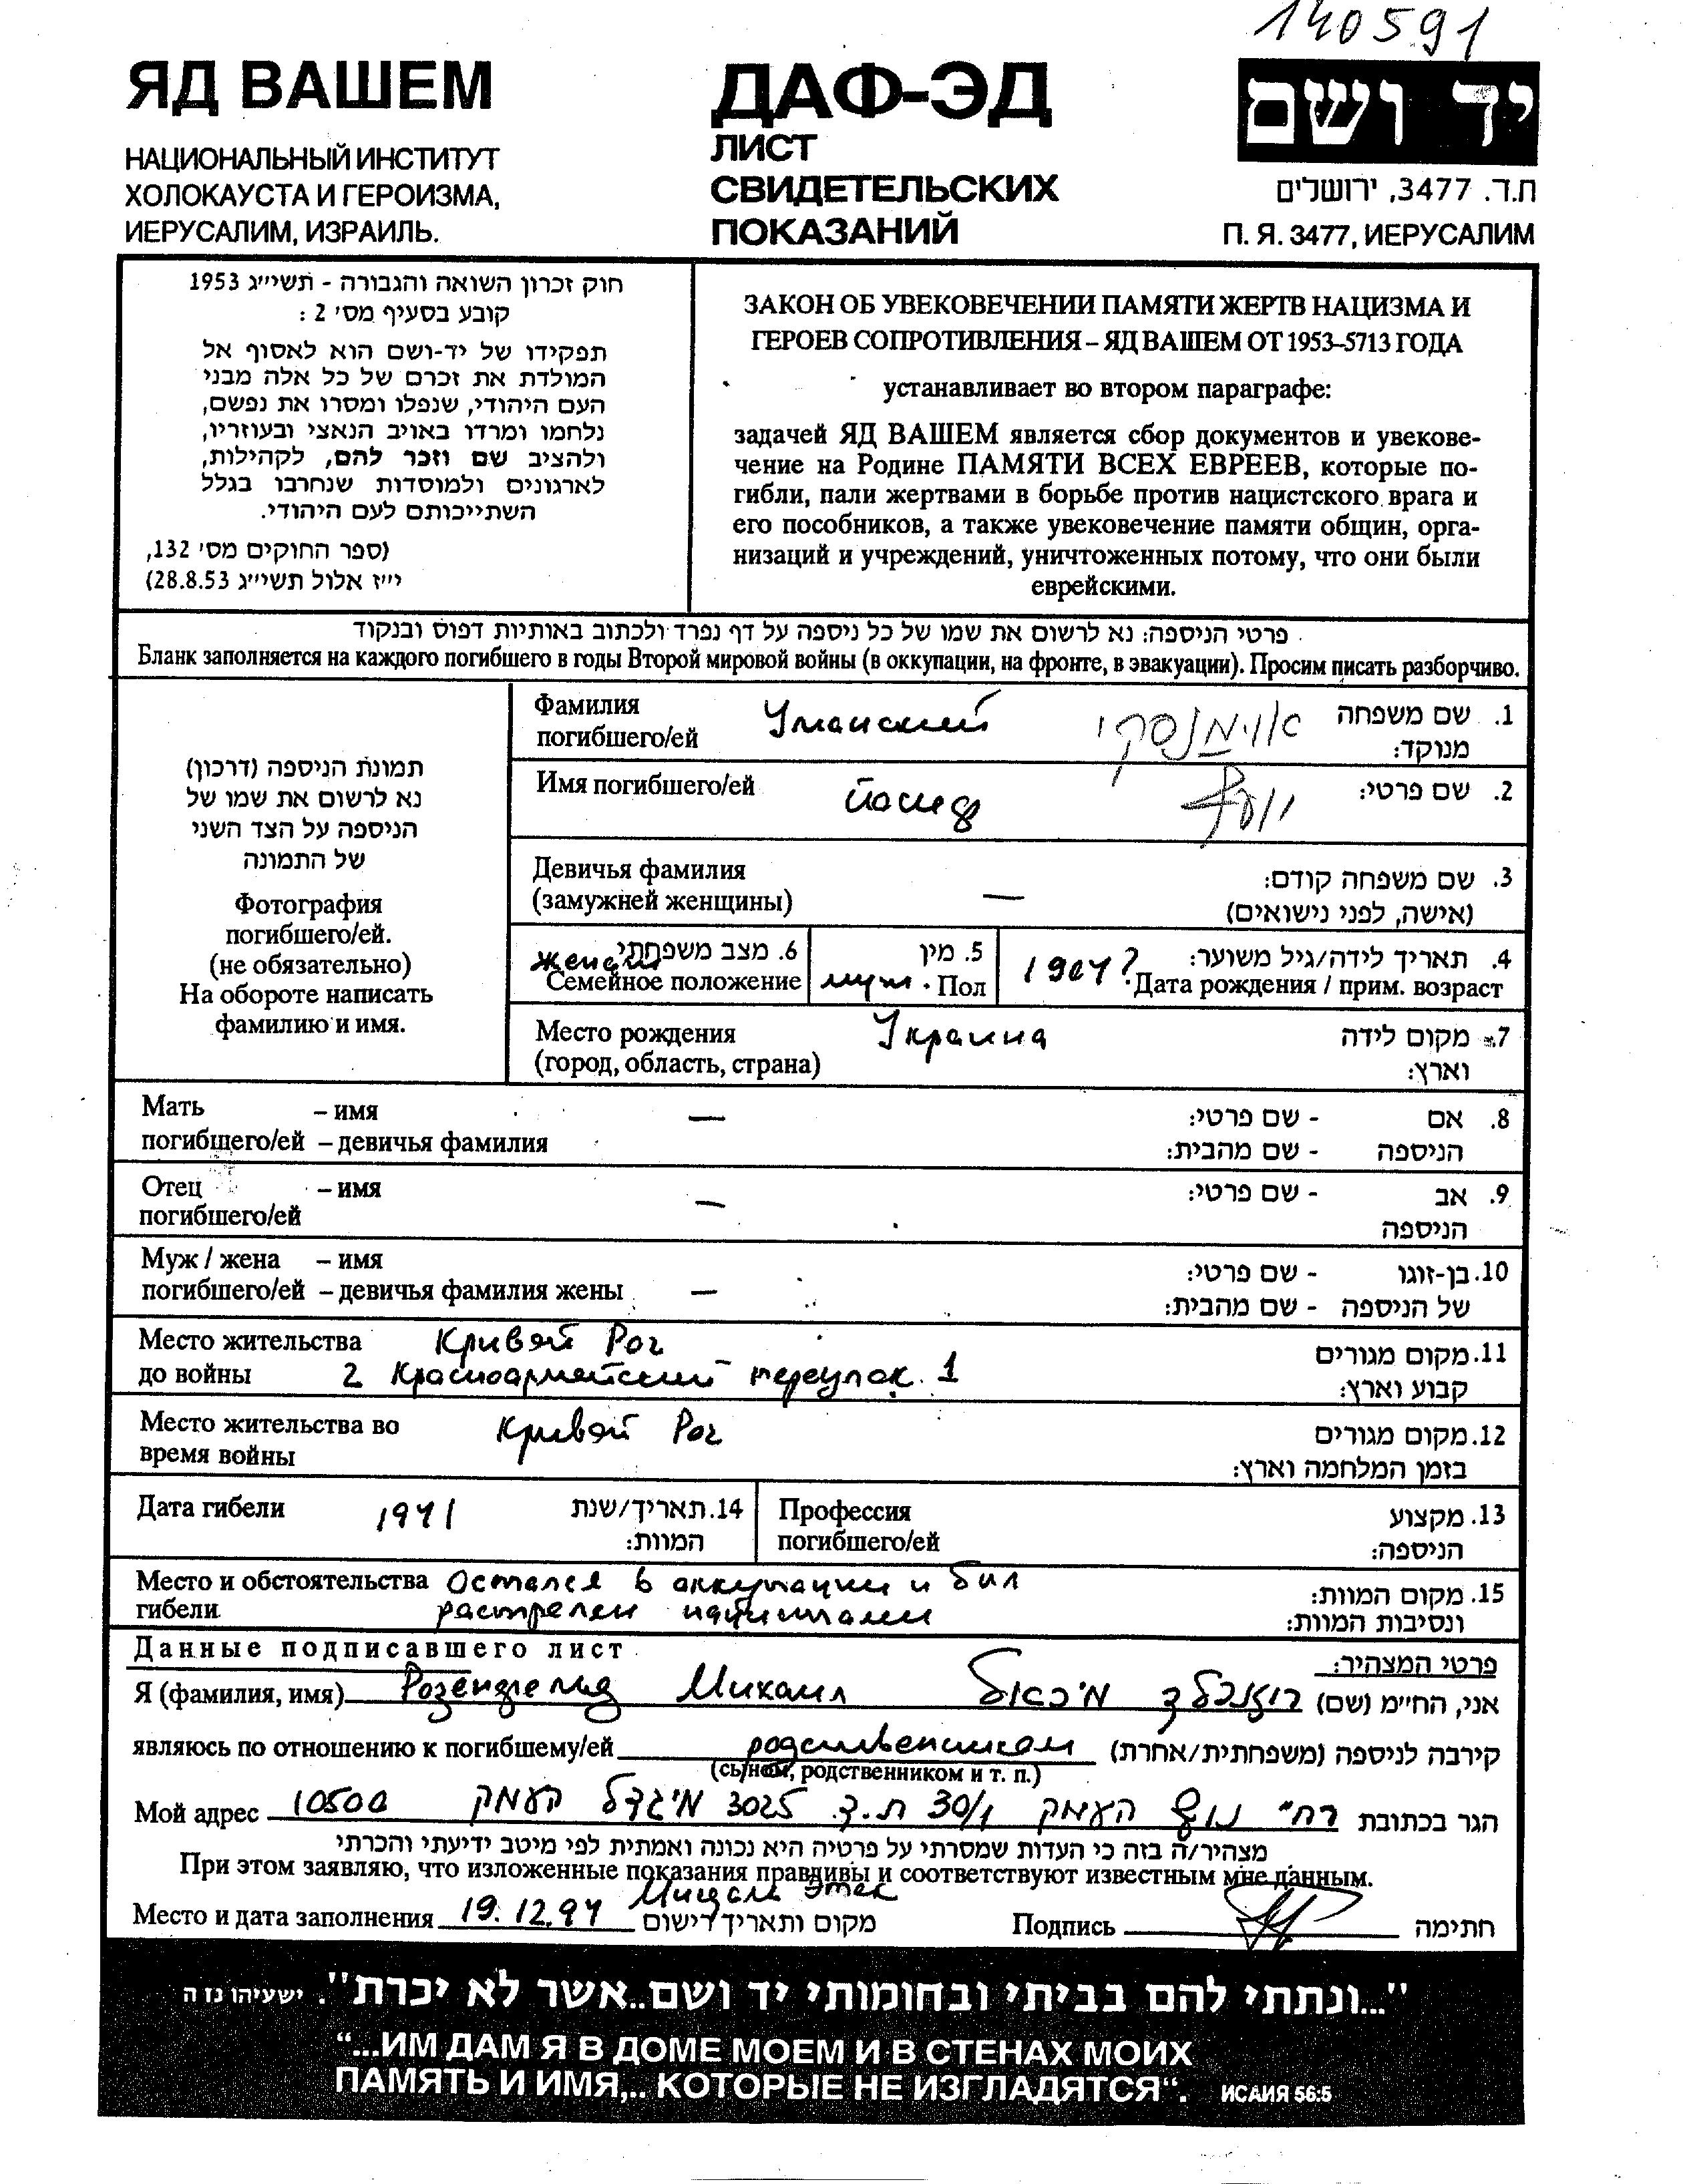 140591
ЯД ВАШЕМ
НАЦИОНАЛЬНЫЙ ИНСТИТУТ
ХОЛОКАУСТА И ГЕРОИЗМА,
ИЕРУСАЛИМ, ИЗРАИЛЬ.
ДАФ-ЭД
ЛИСТ
СВИДЕТЕЛЬСКИХ
ПОКАЗАНИЙ
יד ושם
ת.ד. 3477, ירושלים
П. Я. 3477, ИЕРУСАЛИМ
חוק זכרון השואה והגבורה - תשי״ג 1953
קובע בסעיף מס׳ 2 :
תפקידו של יד-ושם הוא לאסוף אל
המולדת את זכרם של כל אלה מבני
העם היהודי, שנפלו ומסרו את נפשם,
נלחמו ומרדו באויב הנאצי ובעוזריו,
ולהציב שם וזכר להם, לקהילות,
לארגונים ולמוסדות שנחרבו בגלל
השתייכותם לעם היהודי.
(ספר החוקים מס׳ 132,
י״ז אלול תשי״ג 28.8.53)
ЗАКОН ОБ УВЕКОВЕЧЕНИИ ПАМЯТИ ЖЕРТВ НАЦИЗМА И
ГЕРОЕВ СОПРОТИВЛЕНИЯ – ЯД ВАШЕМ ОТ 1953–5713 ГОДА
устанавливает во втором параграфе:
задачей ЯД ВАШЕМ является сбор документов и увекове-
чение на Родине ПАМЯТИ ВСЕХ ЕВРЕЕВ, которые по-
гибли, пали жертвами в борьбе против нацистского врага и
его пособников, а также увековечение памяти общин, орга-
низаций и учреждений, уничтоженных потому, что они были
еврейскими.
פרטי הניספה: נא לרשום את שמו של כל ניספה על דף נפרד ולכתוב באותיות דפוס ובנקוד
Бланк заполняется на каждого погибшего в годы Второй мировой войны (в оккупации, на фронте, в эвакуации). Просим писать разборчиво.
תמונת הניספה (דרכון)
נא לרשום את שמו של
הניספה על הצד השני
של התמונה
Фотография
погибшего/ей.
(не обязательно)
На обороте написать
фамилию и имя.
Фамилия Уманский אוימנסקי 1. שם משפחה
погибшего/ей מנוקד:
Имя погибшего/ей Йосиф יוסף 2. שם פרטי:
Девичья фамилия 3. שם משפחה קודם:
(замужней женщины) — (אישה, לפני נישואים)
6. מצב משפחתי
женат
Семейное положение
5. מין
муж. Пол
4. תאריך לידה/גיל משוער:
1904? Дата рождения / прим. возраст
Место рождения Украина 7. מקום לידה
(город, область, страна) וארץ:
Мать – имя — 8. אם - שם פרטי:
погибшего/ей – девичья фамилия הניספה - שם מהבית:
Отец – имя — 9. אב - שם פרטי:
погибшего/ей הניספה
Муж / жена – имя 10. בן-זוגו - שם פרטי:
погибшего/ей – девичья фамилия жены — של הניספה - שם מהבית:
Место жительства Кривой Рог 11. מקום מגורים
до войны 2 Красноармейский переулок 1 קבוע וארץ:
Место жительства во Кривой Рог 12. מקום מגורים
время войны בזמן המלחמה וארץ:
Дата гибели 1941 14. תאריך/שנת
המוות:
Профессия 13. מקצוע
погибшего/ей הניספה:
Место и обстоятельства Остался в аккупации и бил 15. מקום המוות:
гибели растрелен нацистами ונסיבות המוות:
Данные подписавшего лист פרטי המצהיר:
Я (фамилия, имя) Розенфельд Михаил רוזנפלד מיכאל אני, הח״מ (שם)
являюсь по отношению к погибшему/ей родственником קירבה לניספה (משפחתית/אחרת)
(сыном, родственником и т. п.)
Мой адрес רח׳ נוף העמק 30/1 ת.ד. 3025 מיגדל העמק 10500 הגר בכתובת
מצהיר/ה בזה כי העדות שמסרתי על פרטיה היא נכונה ואמתית לפי מיטב ידיעתי והכרתי
При этом заявляю, что изложенные показания правдивы и соответствуют известным мне данным.
Место и дата заполнения 19.12.94 Мигдаль Эмек מקום ותאריך רישום Подпись חתימה
"...ונתתי להם בביתי ובחומותי יד ושם..אשר לא יכרת". ישעיהו נז ה
“...ИМ ДАМ Я В ДОМЕ МОЕМ И В СТЕНАХ МОИХ
ПАМЯТЬ И ИМЯ,.. КОТОРЫЕ НЕ ИЗГЛАДЯТСЯ“. ИСАИЯ 56:5